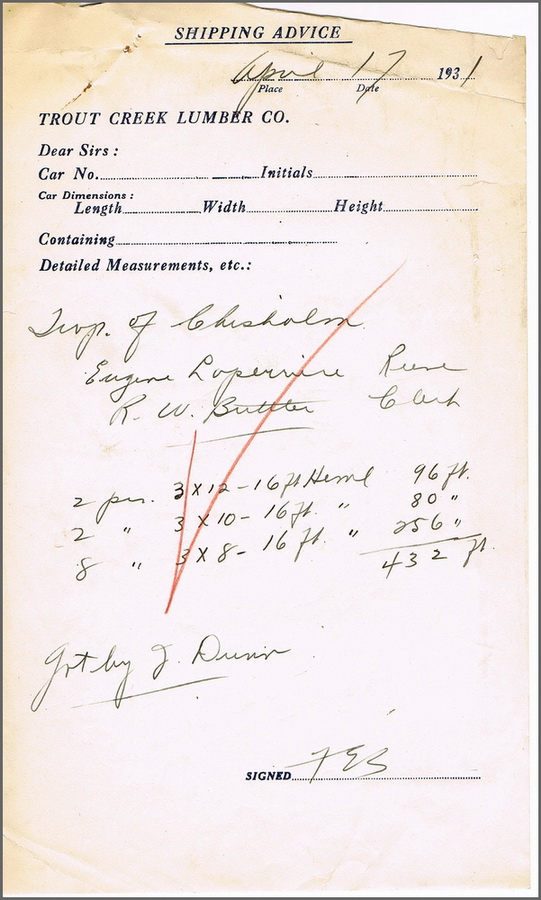 SHIPPING ADVICE
April 17 1931
Place Date
TROUT CREEK LUMBER CO.
Dear Sirs:
Car No. Initials
Car Dimensions:
Length Width Height
Containing
Detailed Measurements, etc.:
Twp. of Chisholm
Eugene Reeve
R. W. Butler Clerk
2 pcs. 3 x 12 - 16 ft Heml 96 ft.
2 " 3 x 10 - 16 ft. " 80 "
8 " 3 x 8 - 16 ft. " 256 "
432 ft.
Got by J. Dunn
SIGNED